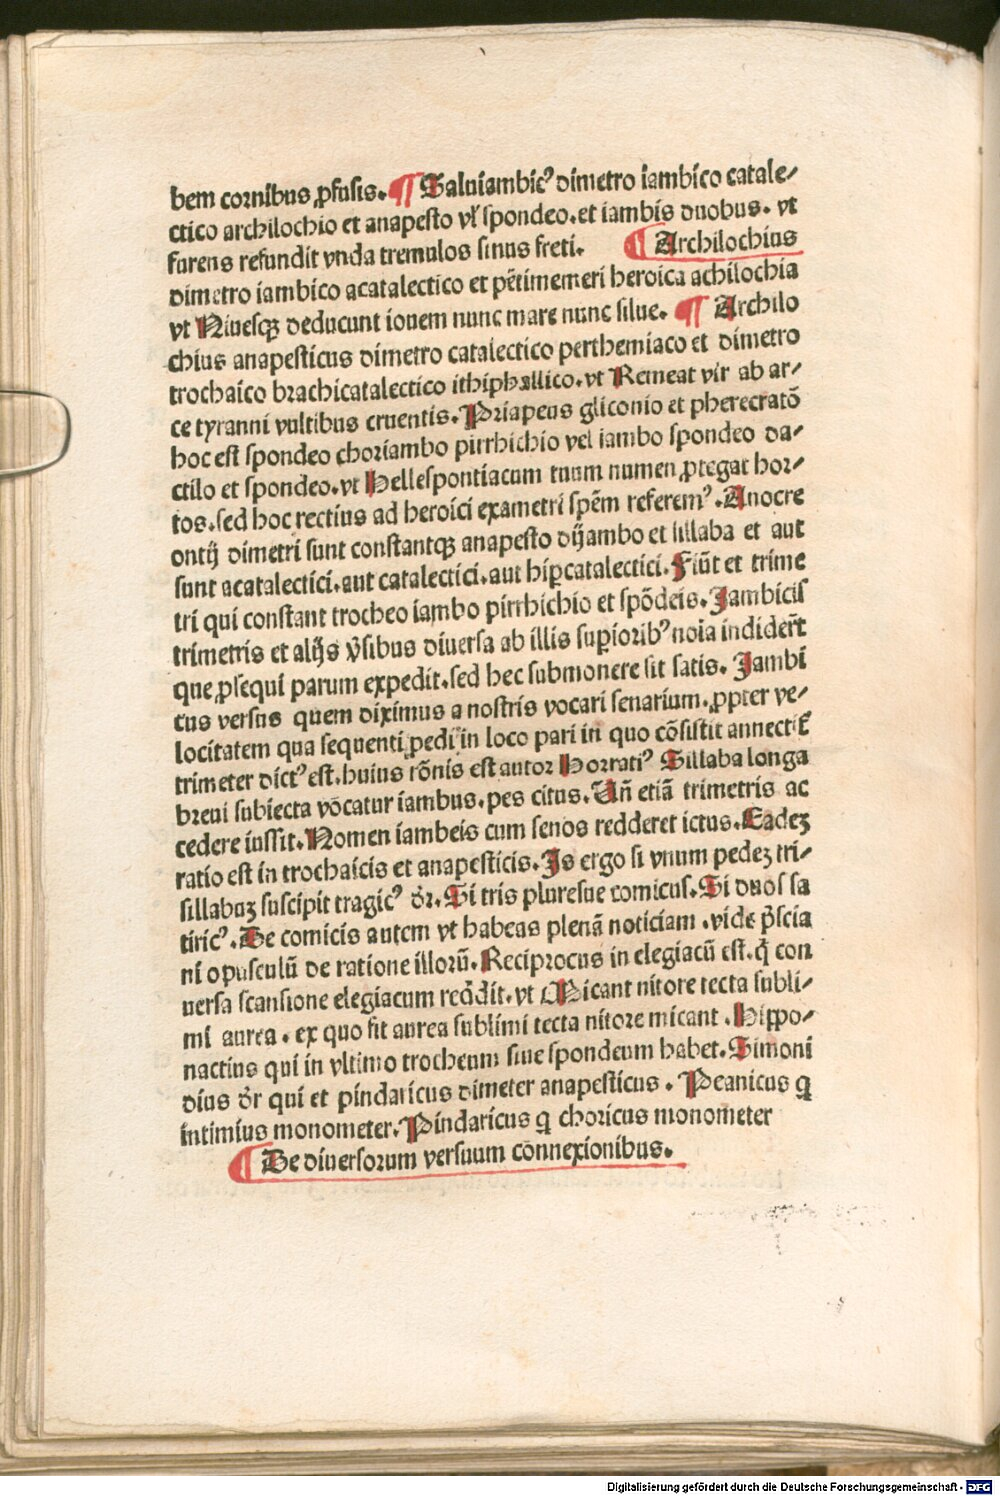 bem cornibus ꝓfusis. ¶ Galuiambicꝰ dimetro iambico catale⸗
ctico archilochio et anapesto vl̓ spondeo. et iambis duobus. vt
furens refundit vnda tremulos sinus freti. ¶ Archilochius
dimetro iambico acatalectico et pētimemeri heroica achilochia
vt Niuesqꝫ deducunt iouem nunc mare nunc silue. ¶ Archilo
chius anapesticus dimetro catalectico perthemiaco et dimetro
trochaico brachicatalectico ithiphallico. vt Remeat vir ab ar⸗
ce tyranni vultibus cruentis. Priapeus gliconio et pherecratō
hoc est spondeo choriambo pirrhichio vel iambo spondeo da⸗
ctilo et spondeo. vt Hellespontiacum tuum numen ꝓtegat hor⸗
tos. sed hoc rectius ad heroici exametri spēm referemꝰ. Anocre
ontij dimetri sunt constantqꝫ anapesto dijambo et sillaba et aut
sunt acatalectici. aut catalectici. aut hiꝑcatalectici. Fiūt et trime
tri qui constant trocheo iambo pirrhichio et spōdeis. Jambicis
trimetris et alijs v̓sibus diuersa ab illis suꝑioribꝰ noīa indider̄t
que ꝓsequi parum expedit. sed hec submonere sit satis. Jambī
cus versus quem diximus a nostris vocari senarium. ꝓpter ve⸗
locitatem qua sequenti pedi in loco pari in quo cōsistit annectit̄
trimeter dictꝰ est. huius rōnis est autor Horratiꝰ Sillaba longa
breui subiecta vocatur iambus. pes citus. Vn̄ etiā trimetris ac
cedere iussit. Nomen iambeis cum senos redderet ictus. Eadeꝫ
ratio est in trochaicis et anapesticis. Js ergo si vnum pedeꝫ tri⸗
sillabuꝫ suscipit tragicꝰ dr̄. Si tris pluresue comicus. Si duos sa
tiricꝰ. De comicis autem vt habeas plenā noticiam. vide p̄scia
ni opusculū de ratione illorū. Reciprocus in elegiacū est. q̄ con
uersa scansione elegiacum redd̄it. vt Micant nitore tecta subli⸗
mi aurea. ex quo fit aurea sublimi tecta nitore micant. Hippo⸗
nactius qui in vltimo trocheum siue spondeum habet. Simoni
dius dr̄ qui et pindaricus dimeter anapesticus. Peanicus ꝗ
intimius monometer. Pindaricus ꝗ choricus monometer
¶ De diuersorum versuum connexionibus.
Digitalisierung gefördert durch die Deutsche Forschungsgemeinschaft - DFG